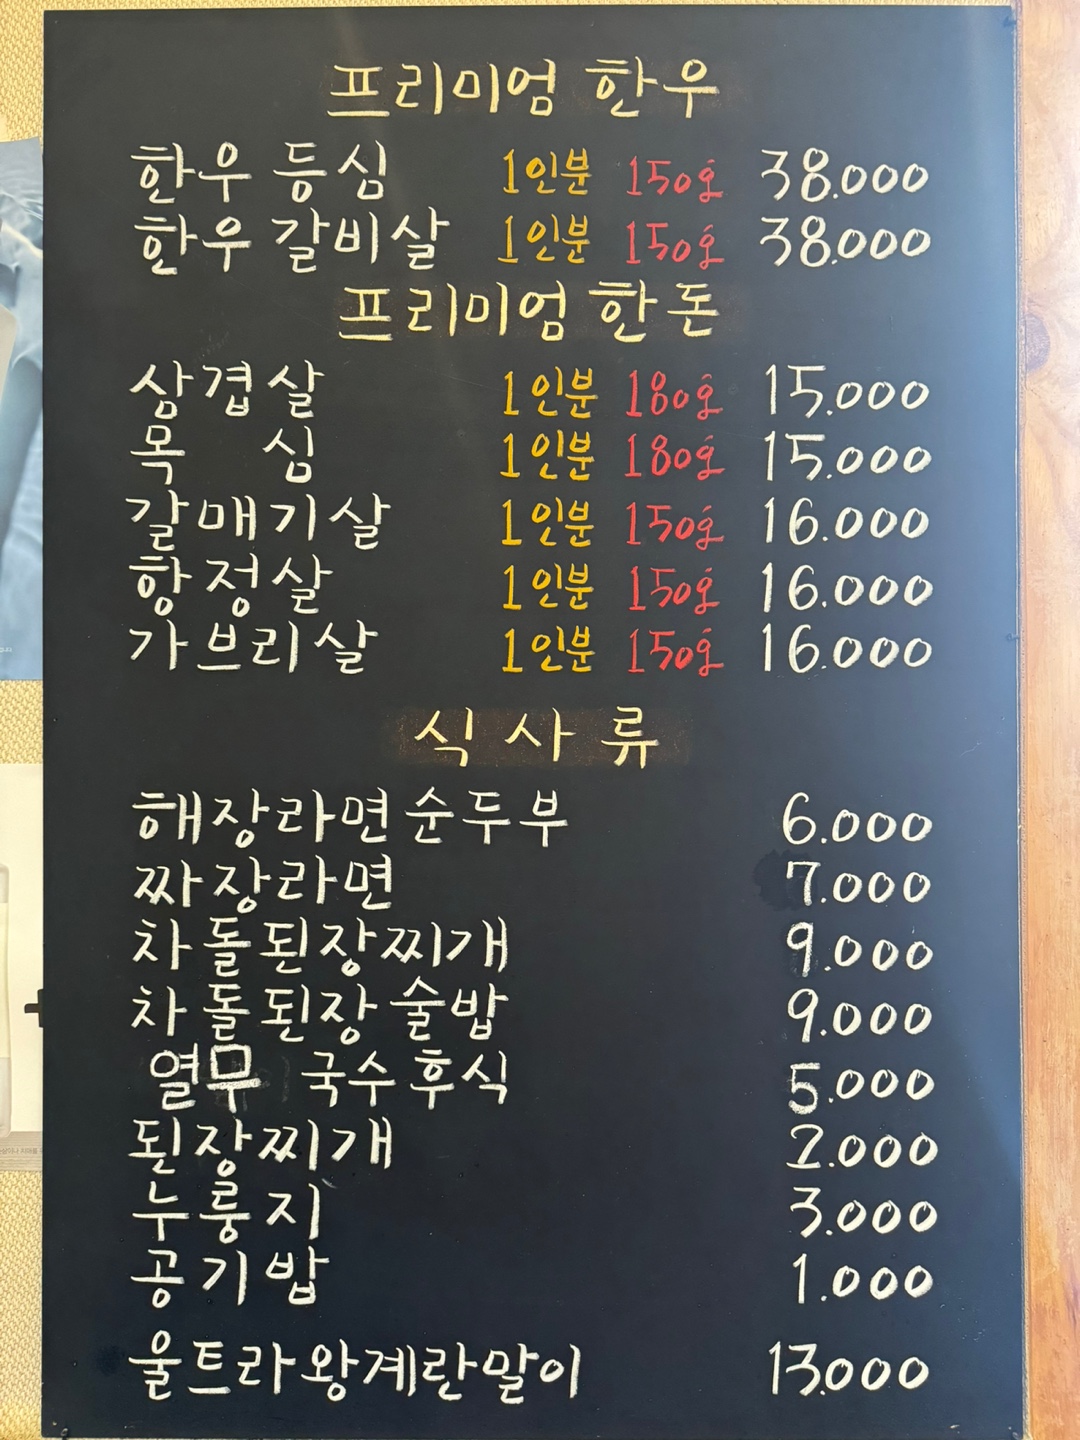 프리미엄 한우
한우 등심 1인분 150g 38.000
한우 갈비살 1인분 150g 38.000
프리미엄 한돈
삼겹살 1인분 180g 15.000
목 심 1인분 180g 15.000
갈매기살 1인분 150g 16.000
항정살 1인분 150g 16.000
가브리살 1인분 150g 16.000
식사류
해장라면순두부 6.000
짜장라면 7.000
차돌된장찌개 9.000
차돌된장술밥 9.000
열무 국수후식 5.000
된장찌개 2.000
누룽지 3.000
공기밥 1.000
울트라왕계란말이 13.000